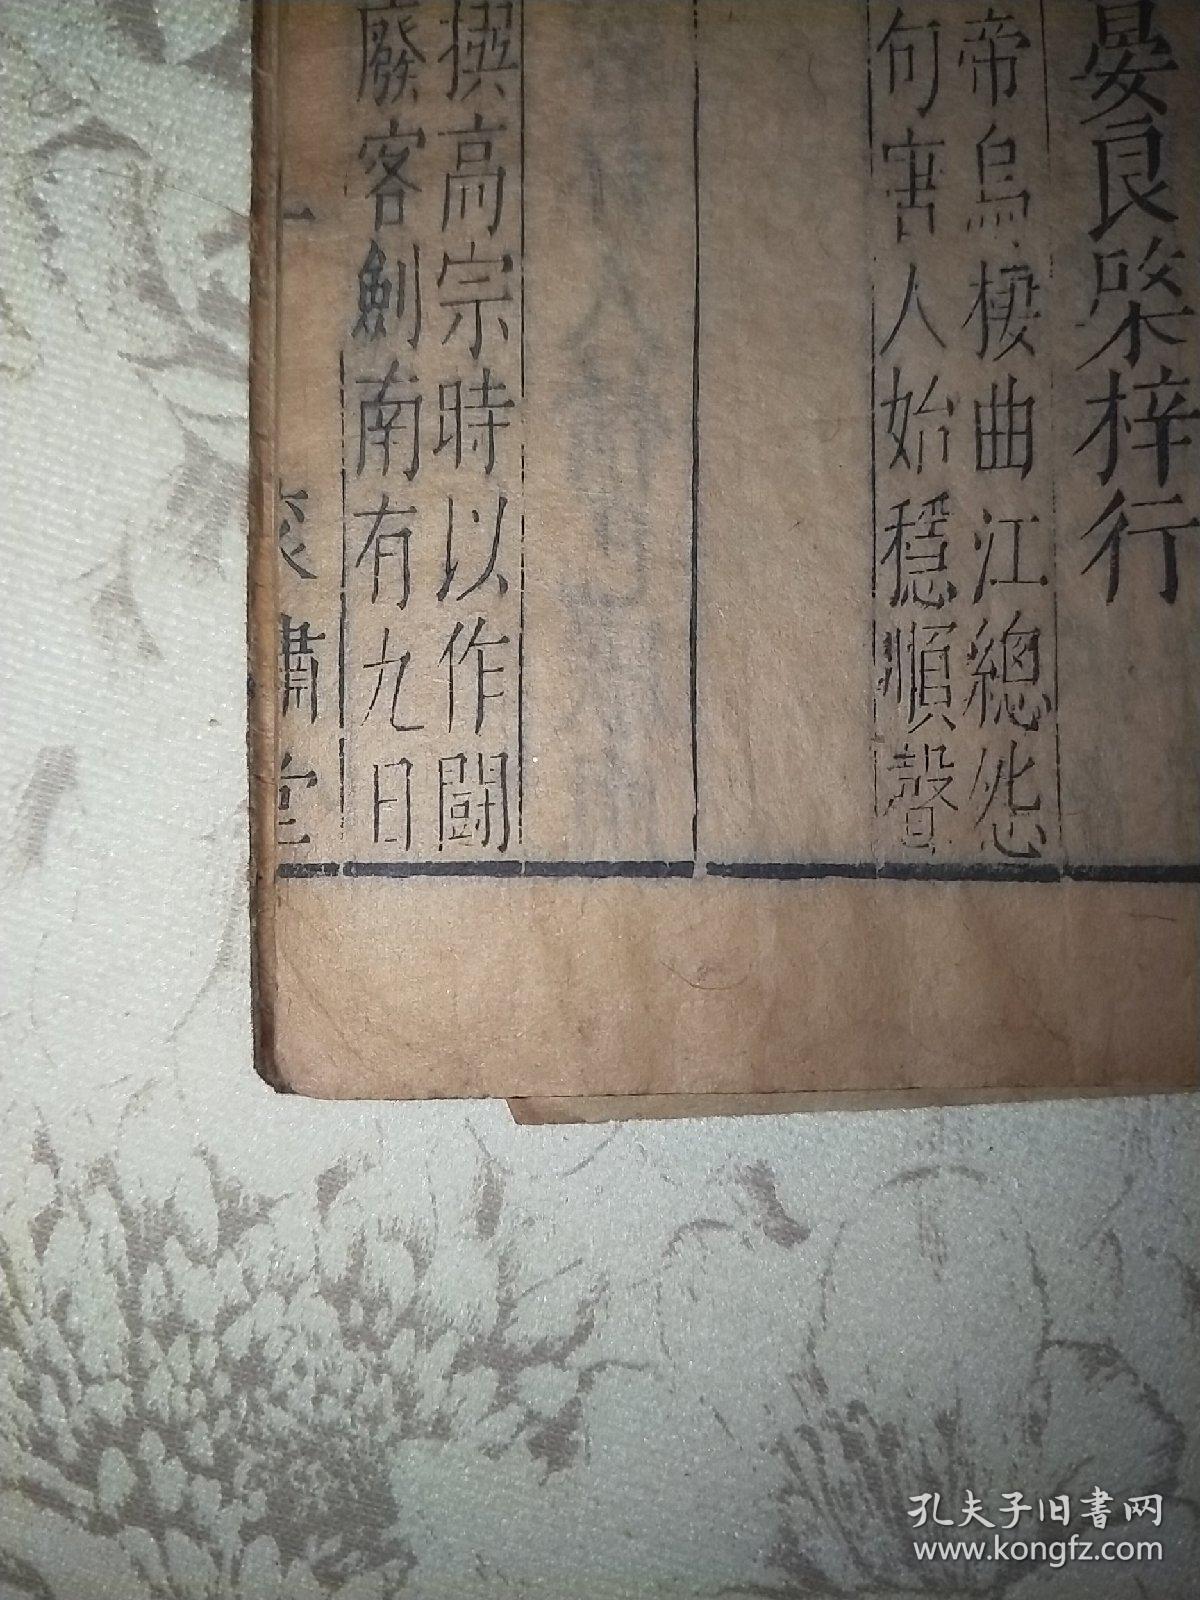 晏良棨梓行
帝烏棲曲江總怨
句害人始穩順聲
撰高宗時以作鬪
廢客劍南有九日
一
堂
孔夫子旧書网
www.kongfz.com